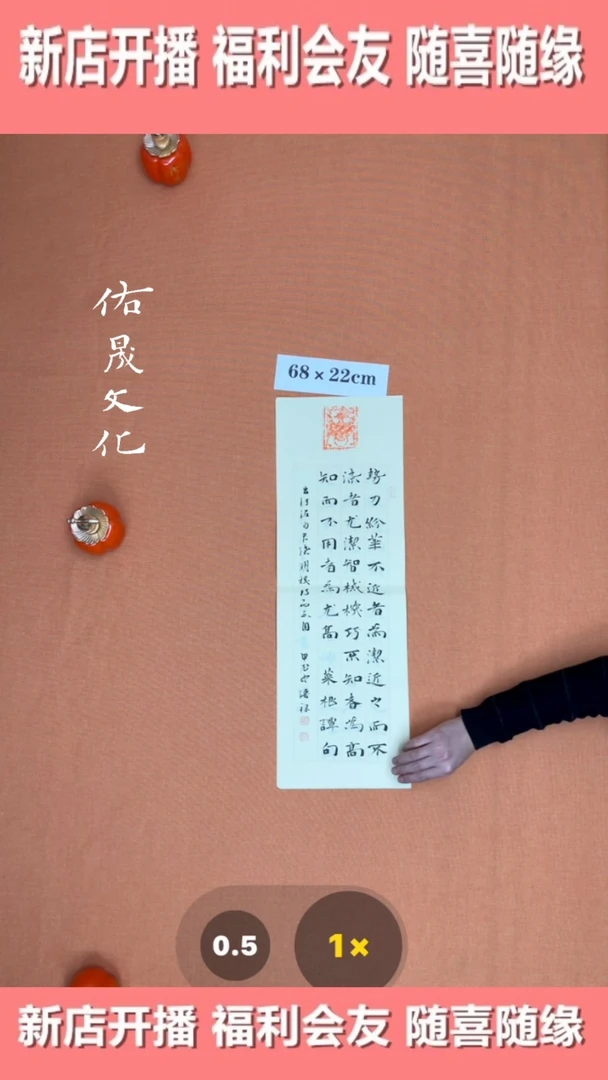 新店开播 福利会友 随喜随缘
佑
晟
文
化
68×22cm
势力纷华不近者为潔近之而不
染者尤潔智械機巧不知者為高
知而不用者為尤高 菜根譚句
0.5
1×
新店开播 福利会友 随喜随缘